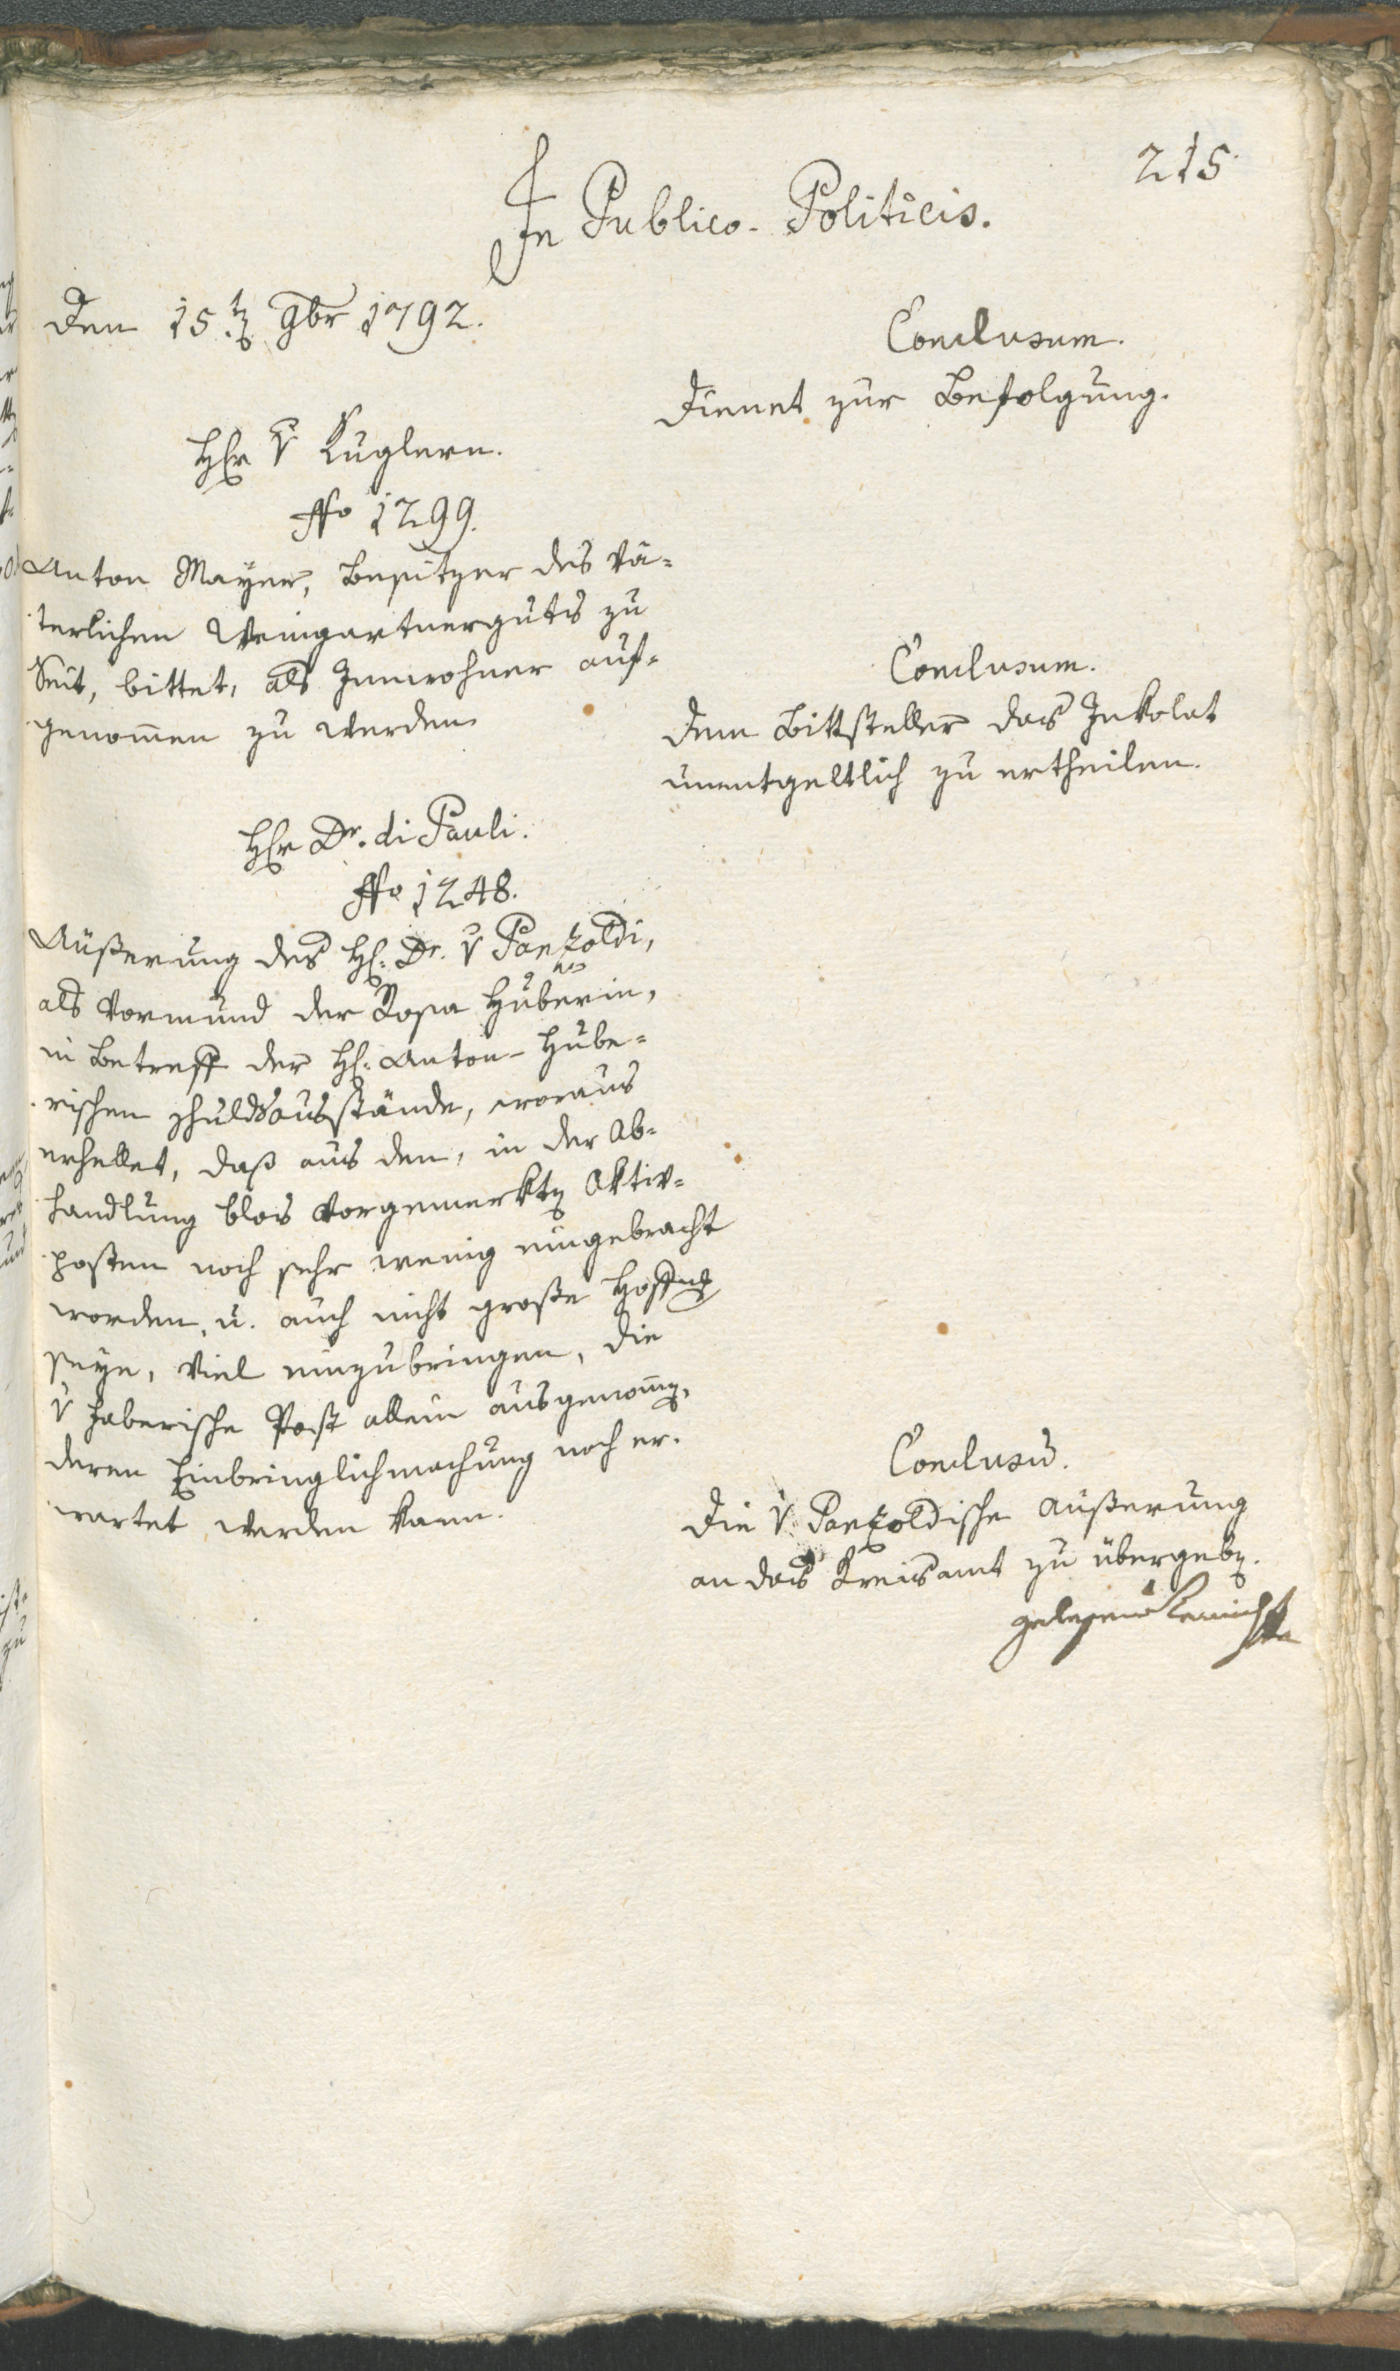 215
In Publico-Politicis.
Den 15.ten 9br 1792.
Conclusum.
Dienet zur Befolgung.
Hr v Kuglern.
No 1299.
Anton Mayer, Besitzer des vä-
terlichen Weingartnerguts zu
Seit, bittet, als Innwohner auf-
genomen zu werden
Conclusum.
Dem Bittsteller das Inkolat
unentgeltlich zu ertheilen.
Hr Dr. di Pauli.
No 1248.
Äußerung des H: Dr. v Panzoldi,
als Vormund der Rosa Huberin,
in Betreff der H: Anton-Hube-
rischen Schuldsausstände, woraus
erhellet, daß aus den, in der Ab-
handlung blos vorgemerkten Aktiv-
posten noch sehr wenig eingebracht
worden, u. auch nicht große Hoffnung
seye, viel einzubringen, die
v Haberische Post allein ausgenomen,
deren Einbringlichmachung noch er-
wartet werden kann.
Conclusum.
Die v. Panzoldische Äußerung
an das Kreisamt zu übergeben.
gelesen